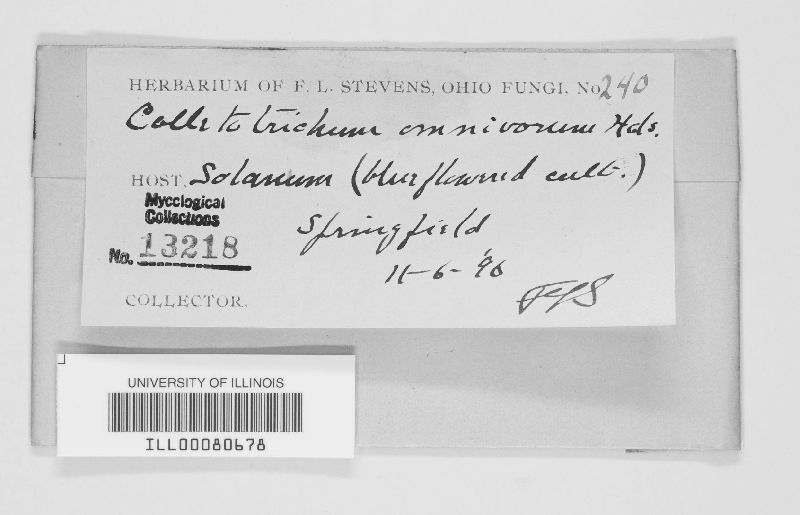 HERBARIUM OF F. L. STEVENS, OHIO FUNGI, No 240
Colletotrichum omnivorum Hals.
HOST, Solanum (blueflowered cult.)
Mycological
Collections
No. 13218
Springfield
11-6-'96
COLLECTOR. FLS
UNIVERSITY OF ILLINOIS
ILL00080678